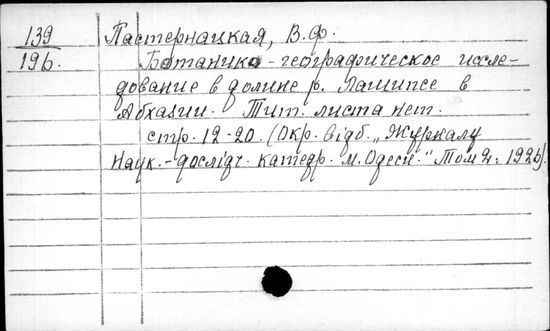 139 Пастернацкая, В.Ф.
196. Ботанико-географическое иссле-
дование в долине р. Лашипсе в
Абхазии. Тит. листа нет.
стр. 12-20. (Окр. відб. „Журналу
Наук.-дослідч. катедр. м. Одеси." Том 2. 1926).